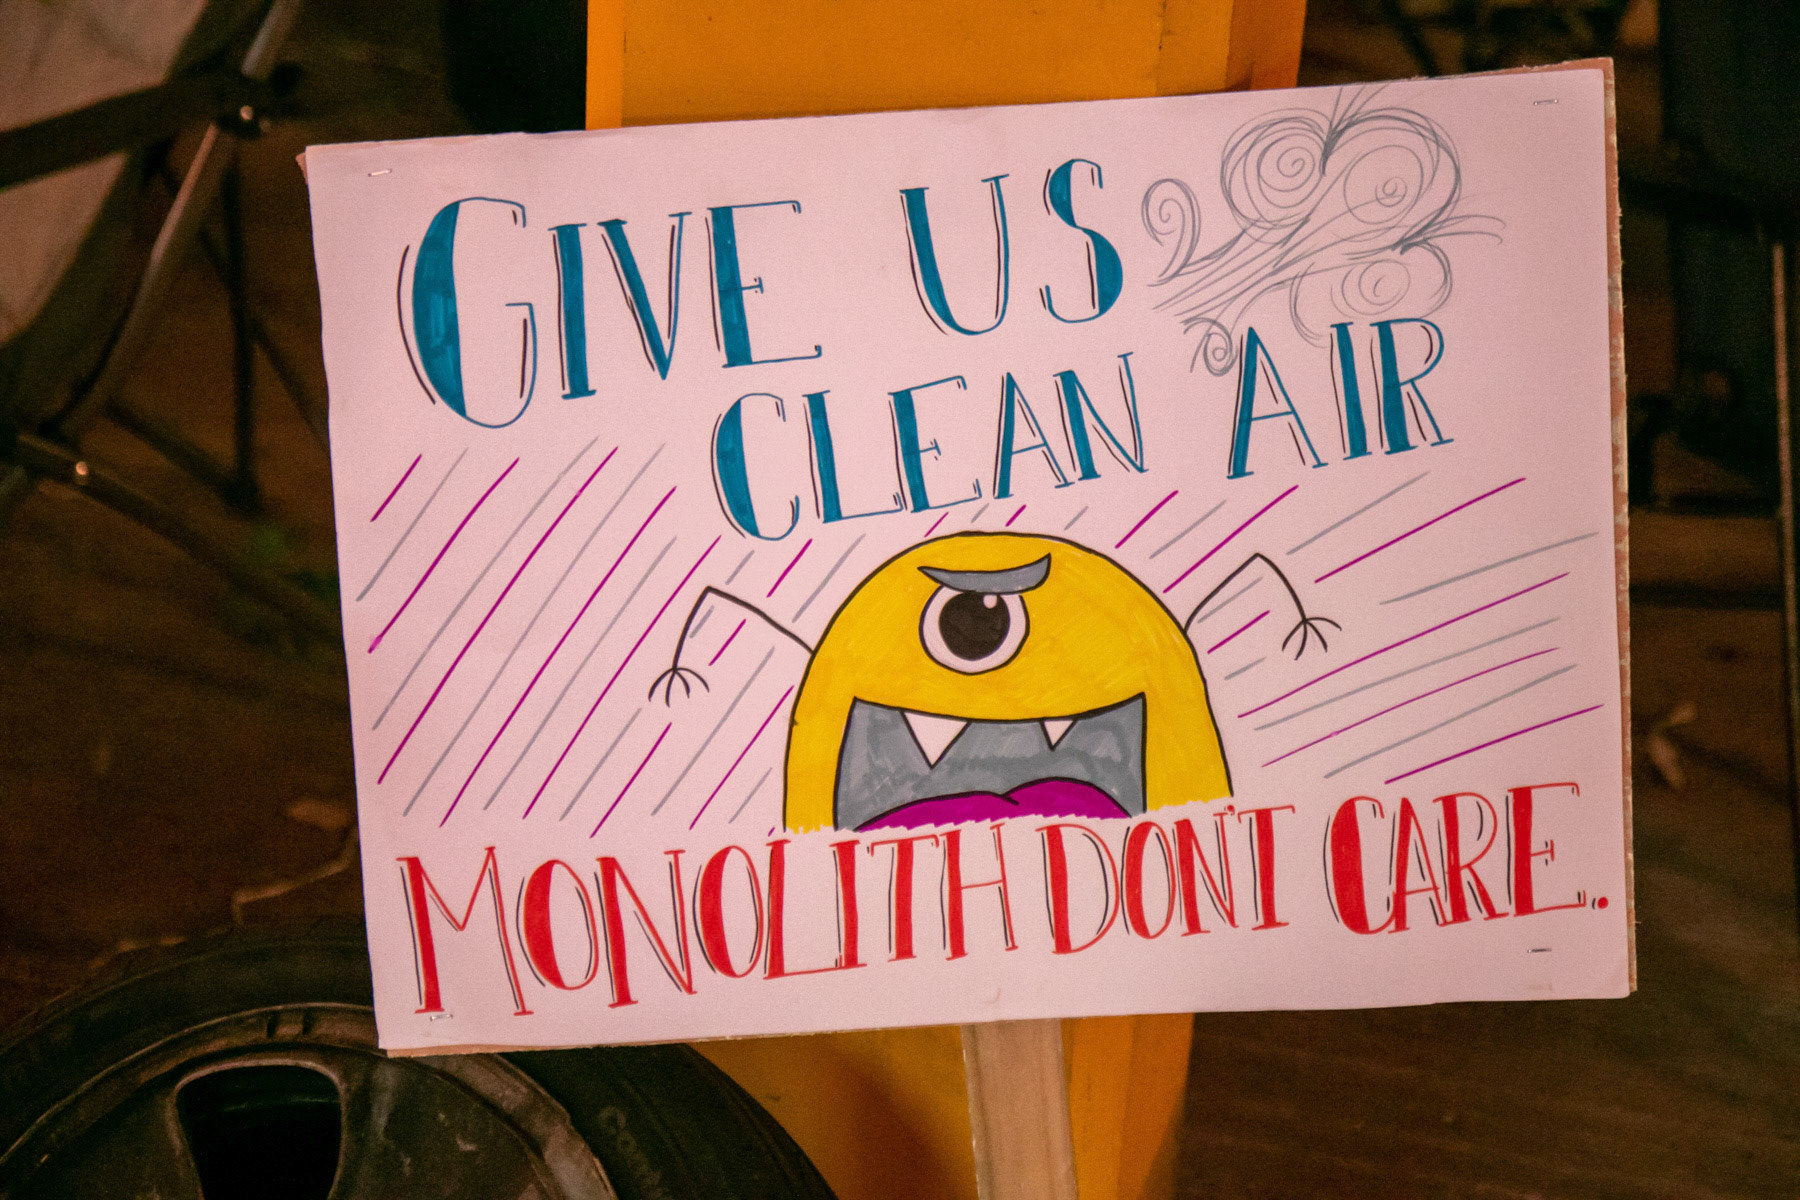 GIVE US
CLEAN AIR
MONOLITH DON'T CARE.